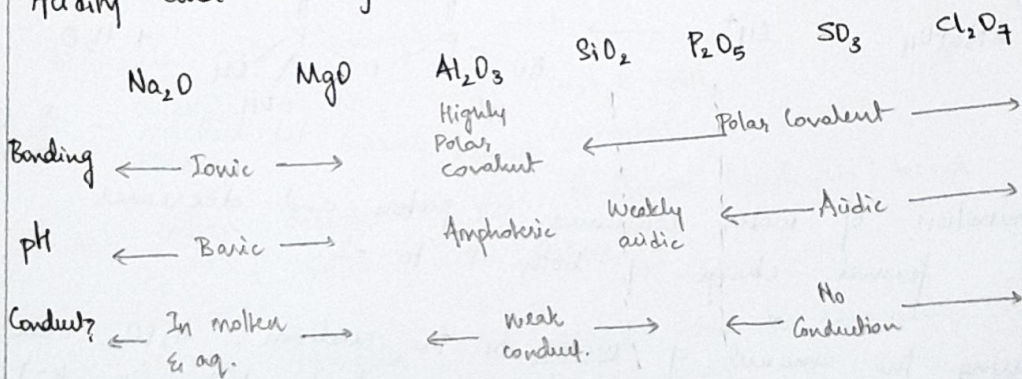 Na₂O MgO Al₂O₃ SiO₂ P₂O₅ SO₃ Cl₂O₇
Bonding ← Ionic → Highly Polar covalent ← Polar Covalent →
pH ← Basic → Amphoteric Weakly acidic ← Acidic →
Conduct? ← In molten & aq. → ← weak conduct. → ← No Conduction →